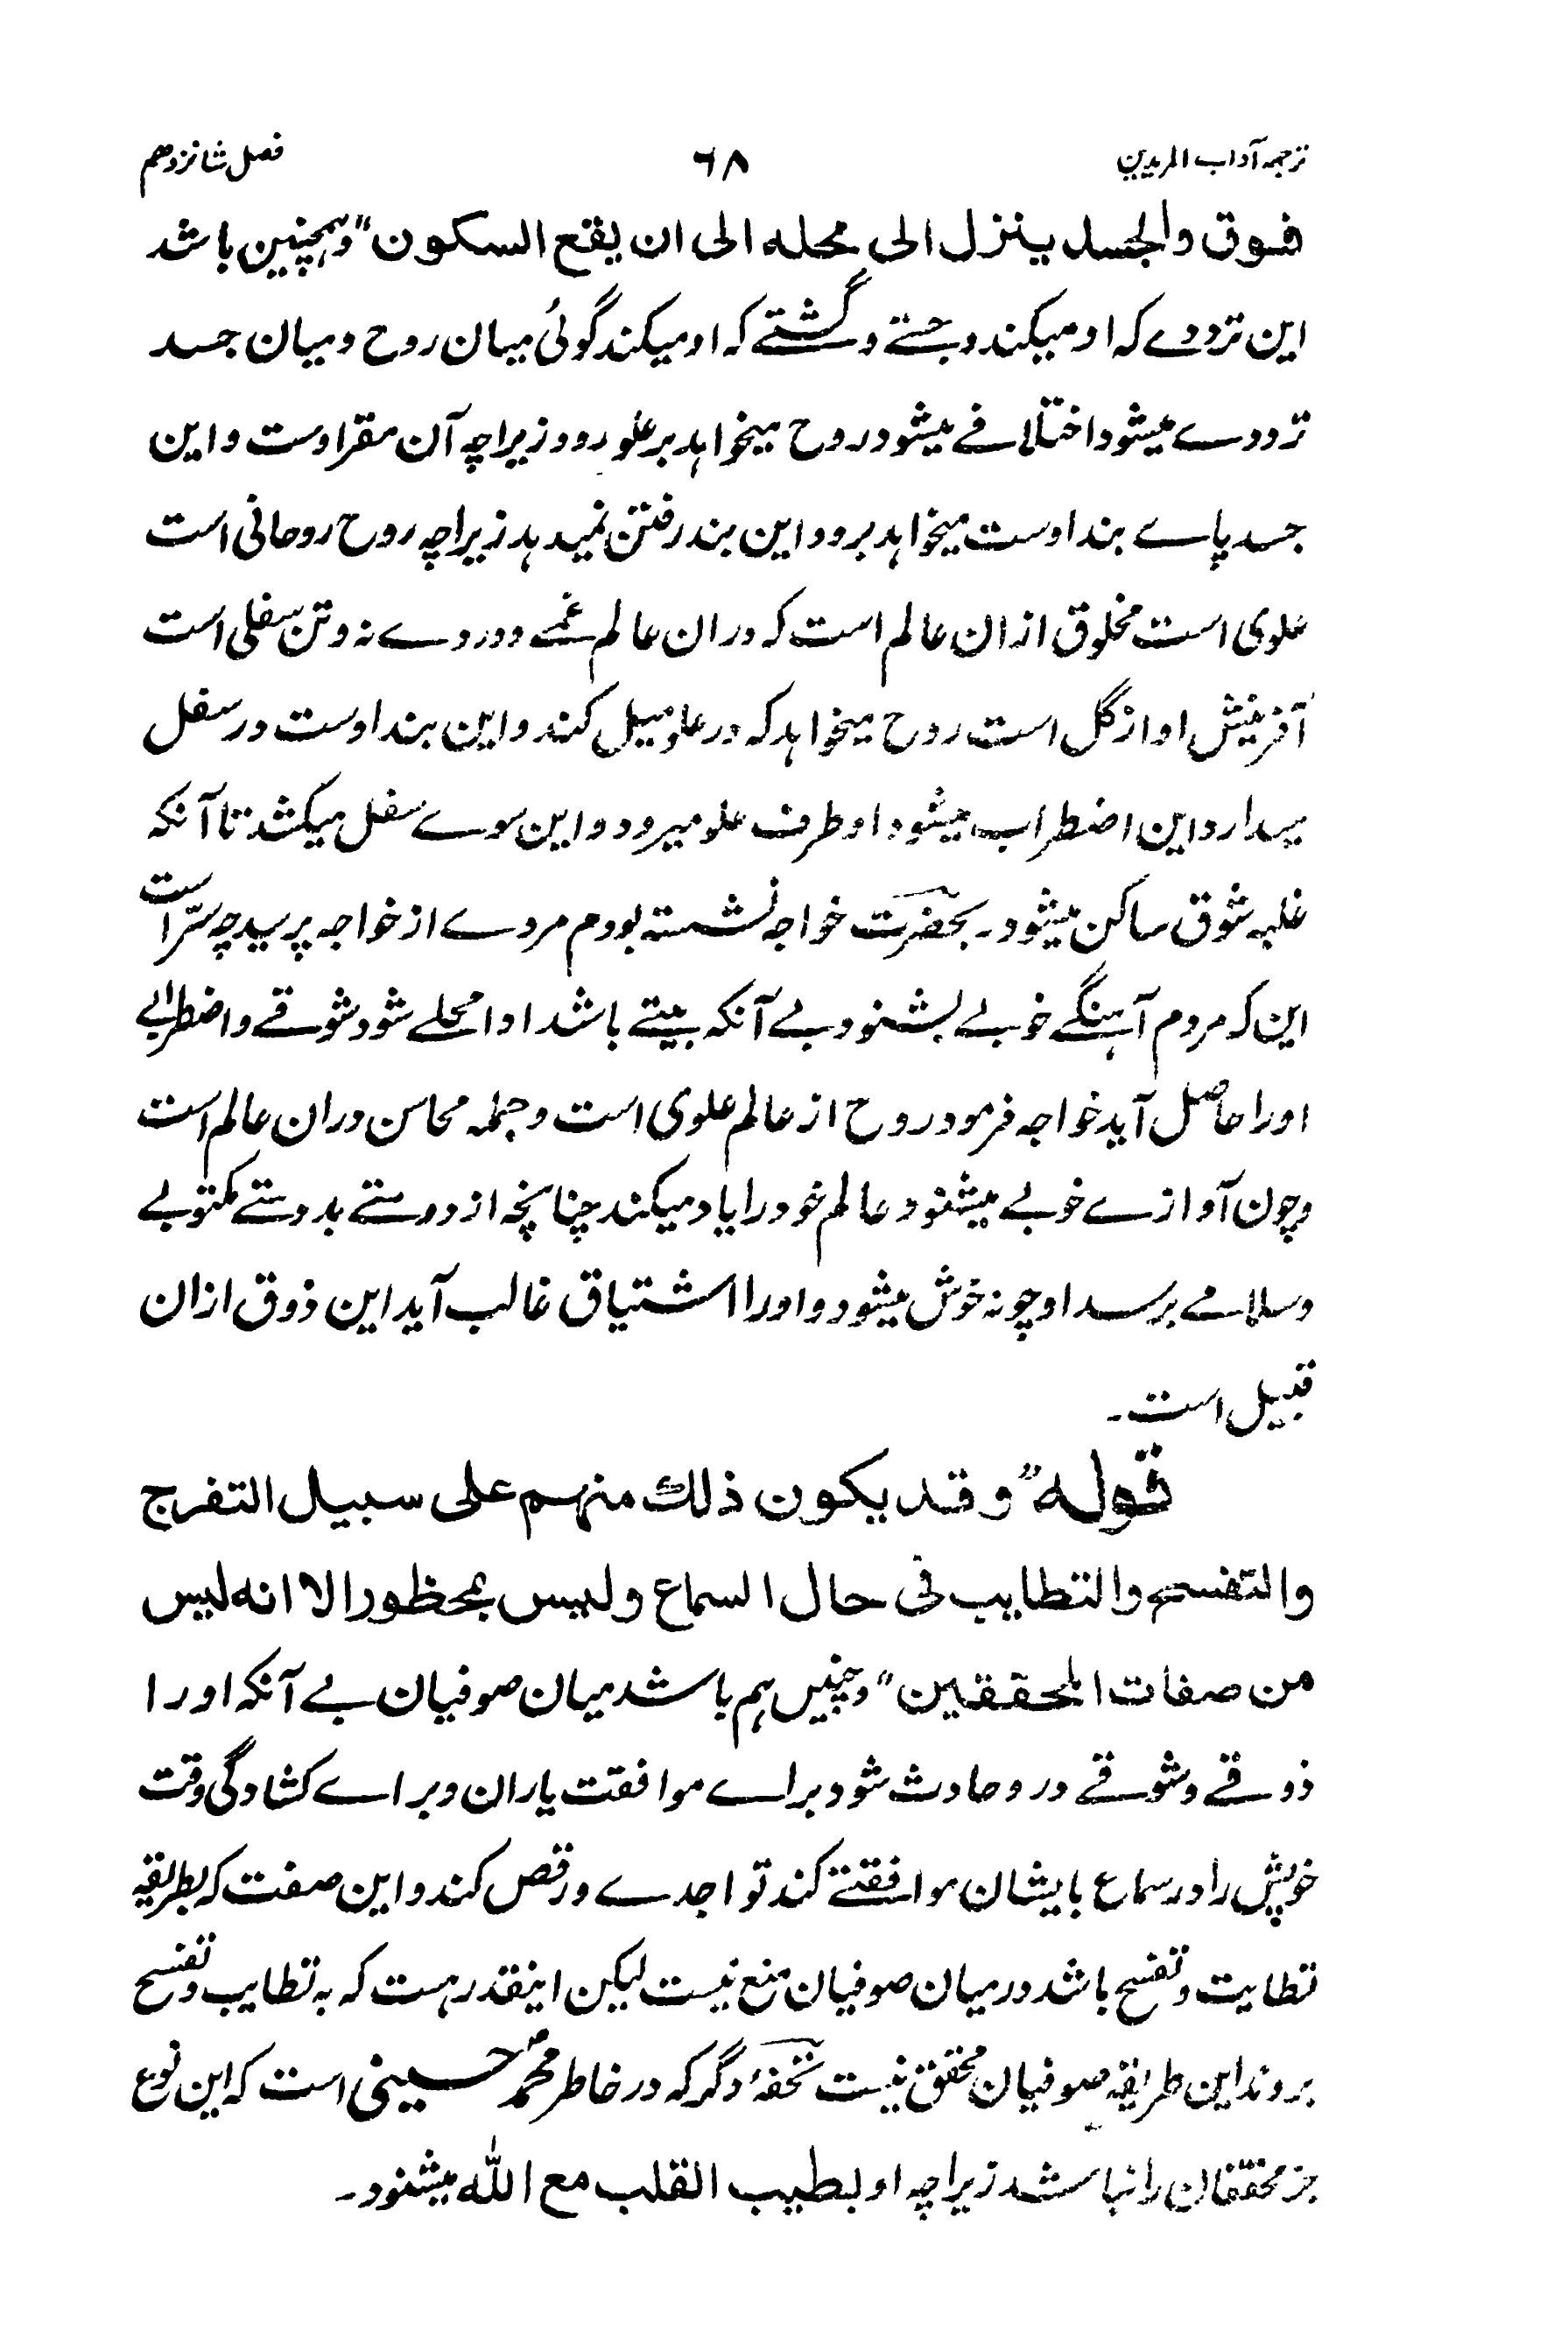 ترجمہ آداب المریدین ۶۸ فصل شانزدہم
فوق والجسد ینزل الی محلہ الی ان یقع السکون" وہمچنین باشد
این ترددے کہ او میکند و جستے و گشتے کہ او میکند گوئی میان روح و میان جسد
ترددے میشود اختلافے میشود روح میخواہد بر علو رود زیراچہ آن مقر اوست و این
جسد پاے بند اوست میخواہد برود این بند رفتن نمیدہد زیراچہ روح روحانی است
علوی است مخلوق ازان عالم است کہ دران عالم غمے و دردے نہ و تن سفلی است
آفرینش او از گل است روح میخواہد کہ در علو میل کند و این بند اوست در سفل
میدارد این اضطراب میشود او طرف علو میرود و این سوے سفل میکشد تا آنکہ
غلبہ شوق ساکن میشود۔ بحضرت خواجہ نشستہ بودم مردے از خواجہ پرسید چہ سرّ است
این کہ مردم آہنگے خوبے بشنود بے آنکہ بیتے باشد او را محلے شود شوقے و اضطرابے
اورا حاصل آید خواجہ فرمود روح از عالم علوی است و جملہ محاسن دران عالم است
وچون آوازے خوبے میشنود عالم خود را یاد میکند چنانچہ از دوستے بدوستے مکتوبے
وسلامے برسد او چونہ خوش میشود و اورا اشتیاق غالب آید این ذوق ازان
قبیل است۔
قولہ "وقد یکون ذلك منہم علی سبیل التفرج
والتفسح والتطایب فی حال السماع ولیس بمحظور الا انہ لیس
من صفات المحققین" و چنین ہم باشد میان صوفیان بے آنکہ اورا
ذوقے و شوقے درو حادث شود براے موافقت یاران و براے کشادگی وقت
خویش را در سماع بایشان موافقتے کند تواجدے و رقص کند و این صفت کہ بطریقہ
تطایت و تفسح باشد درمیان صوفیان منع نیست لیکن اینقدر ہست کہ بہ تطایب و تفسح
بروند این طریقہ صوفیان محقق نیست تحفۂ دگر کہ در خاطر محمد حسینی است کہ این نوع
جز محققان را نباشد زیراچہ او بطیب القلب مع اللہ میشنود۔